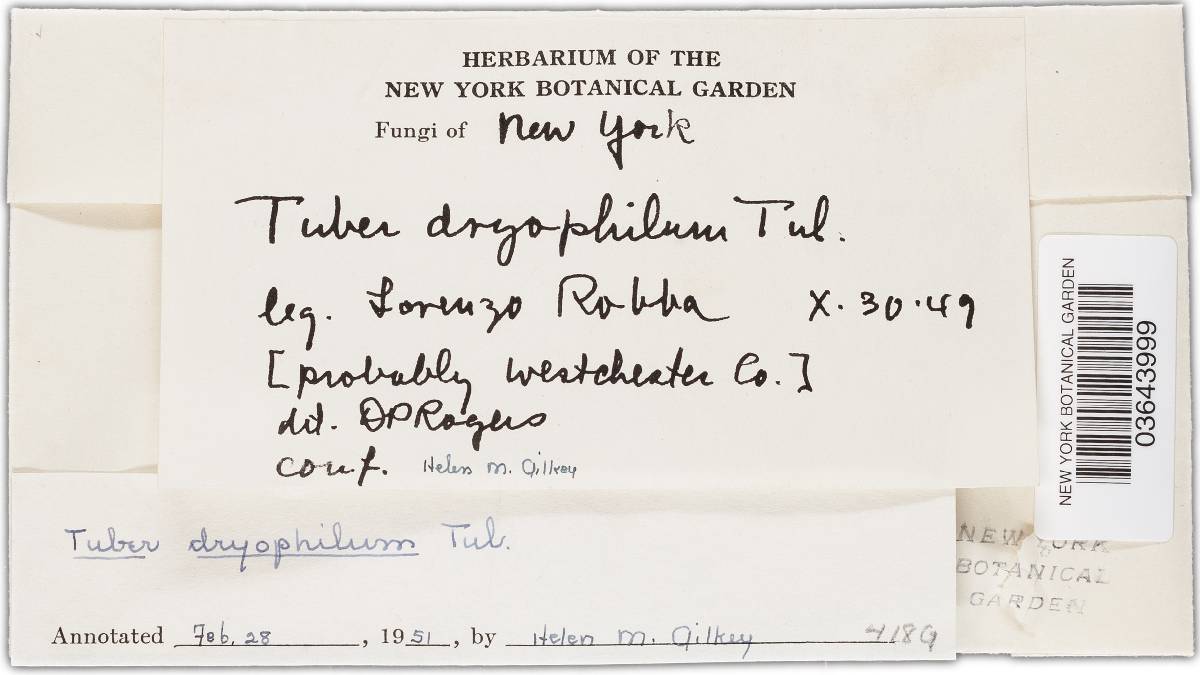 HERBARIUM OF THE
NEW YORK BOTANICAL GARDEN
Fungi of New York
Tuber dryophilum Tul.
leg. Lorenzo Robba X. 30. 49
[probably Westchester Co.]
det. DPRogers
conf. Helen M. Gilkey
NEW YORK BOTANICAL GARDEN
03643999
Tuber dryophilum Tul.
NEW YORK
BOTANICAL
GARDEN
Annotated Feb. 28, 1951, by Helen M. Gilkey 4189